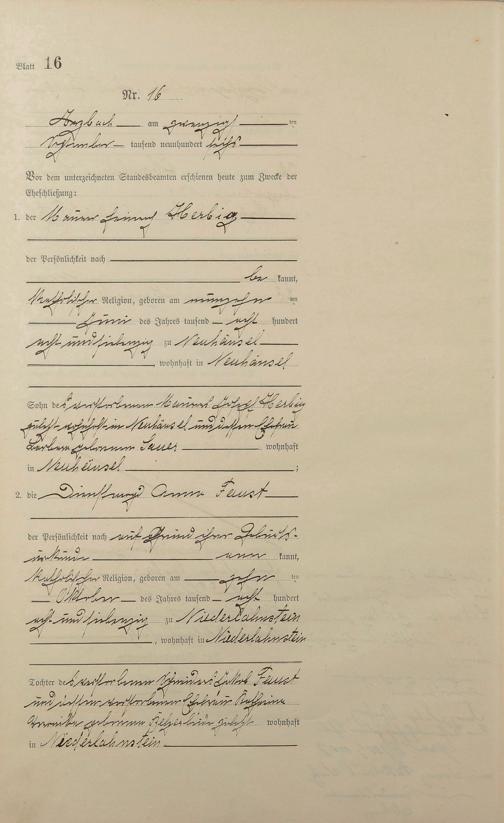 Blatt 16
Nr. 16
am zwanzigsten
September tausend neunhundert sechs
Vor dem unterzeichneten Standesbeamten erschienen heute zum Zwecke der
Eheschließung:
1. der Maurer Herbig
der Persönlichkeit nach
be kannt,
katholischer Religion, geboren am neunzehnten
Juni des Jahres tausend acht hundert
acht und siebenzig zu Neuhäusel
, wohnhaft in Neuhäusel
Sohn des verstorbenen Maurers Josef Herbig
zuletzt wohnhaft in Neuhäusel und dessen Ehefrau
geborenen Sauer wohnhaft
in Neuhäusel ;
2. die Dienstmagd Anna Faust
der Persönlichkeit nach auf Grund ihrer Geburts-
urkunde aner kannt,
katholischer Religion, geboren am zehn ten
Oktober des Jahres tausend acht hundert
acht und siebenzig zu Niederlahnstein
, wohnhaft in Niederlahnstein
Tochter des verstorbenen Schneiders Jakob Faust
und dessen verstorbenen Ehefrau Katharina
Veronika geborenen zuletzt wohnhaft
in Niederlahnstein